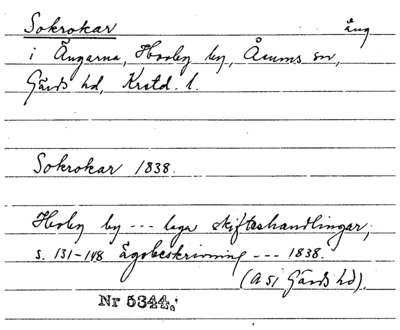 Sokrokar äng
i Ängarna, Horby by, Åsums sn,
Gärds hd, Krstd. l.
Sokrokar 1838.
Horby by --- laga skifteshandlingar,
s. 131-148 ägobeskrivning --- 1838.
(A 51 Gärds hd).
Nr 5344.